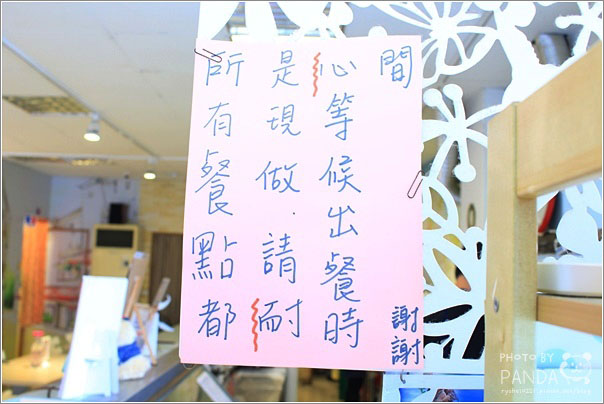 所有餐點都
是現做．請耐
心等候出餐時
間
謝謝
PHOTO BY
PANDA